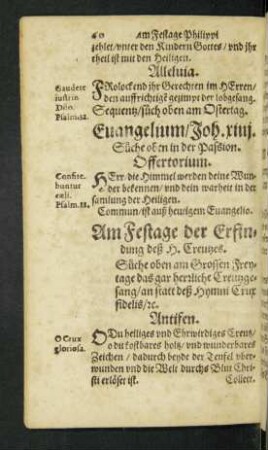 40 Am Festage Philippi
zehlet/vnter den Kindern Gottes/ vnd jhr
theil ist mit den Heiligen.
Alleluia.
Gaudete
iusti in
Dño.
Psalm.32.
FRolocket jhr Gerechten im HErren/
den auffrichtigē gezimpt der lobgesang.
Sequentz/süch oben am Ostertag.
Euangelium/Joh.xiiij.
Süche oben in der Passion.
Offertorium.
Confite-
buntur
celi.
Psalm.88.
HErr die Himmel werden deine Wun-
der bekennen/ vnd dein warheit in der
samlung der Heiligen.
Commun/ist auß hewigem Euangelio.
Am Festage der Erfin-
dung deß H. Creutzes.
Süche oben am Grossen Frey-
tage das gar herzliche Creutzge-
sang/an statt deß Hymni Crux
fidelis/ꝛc.
Antifen.
O Crux
gloriosa.
O Du heiliges vnd Ehrwirdiges Creutz/
o du kostbares holtz/ vnd wunderbares
Zeichen / dadurch beyde der Teufel vber-
wunden vnd die Welt durchs Blut Chri-
sti erlöset ist.
Collect.